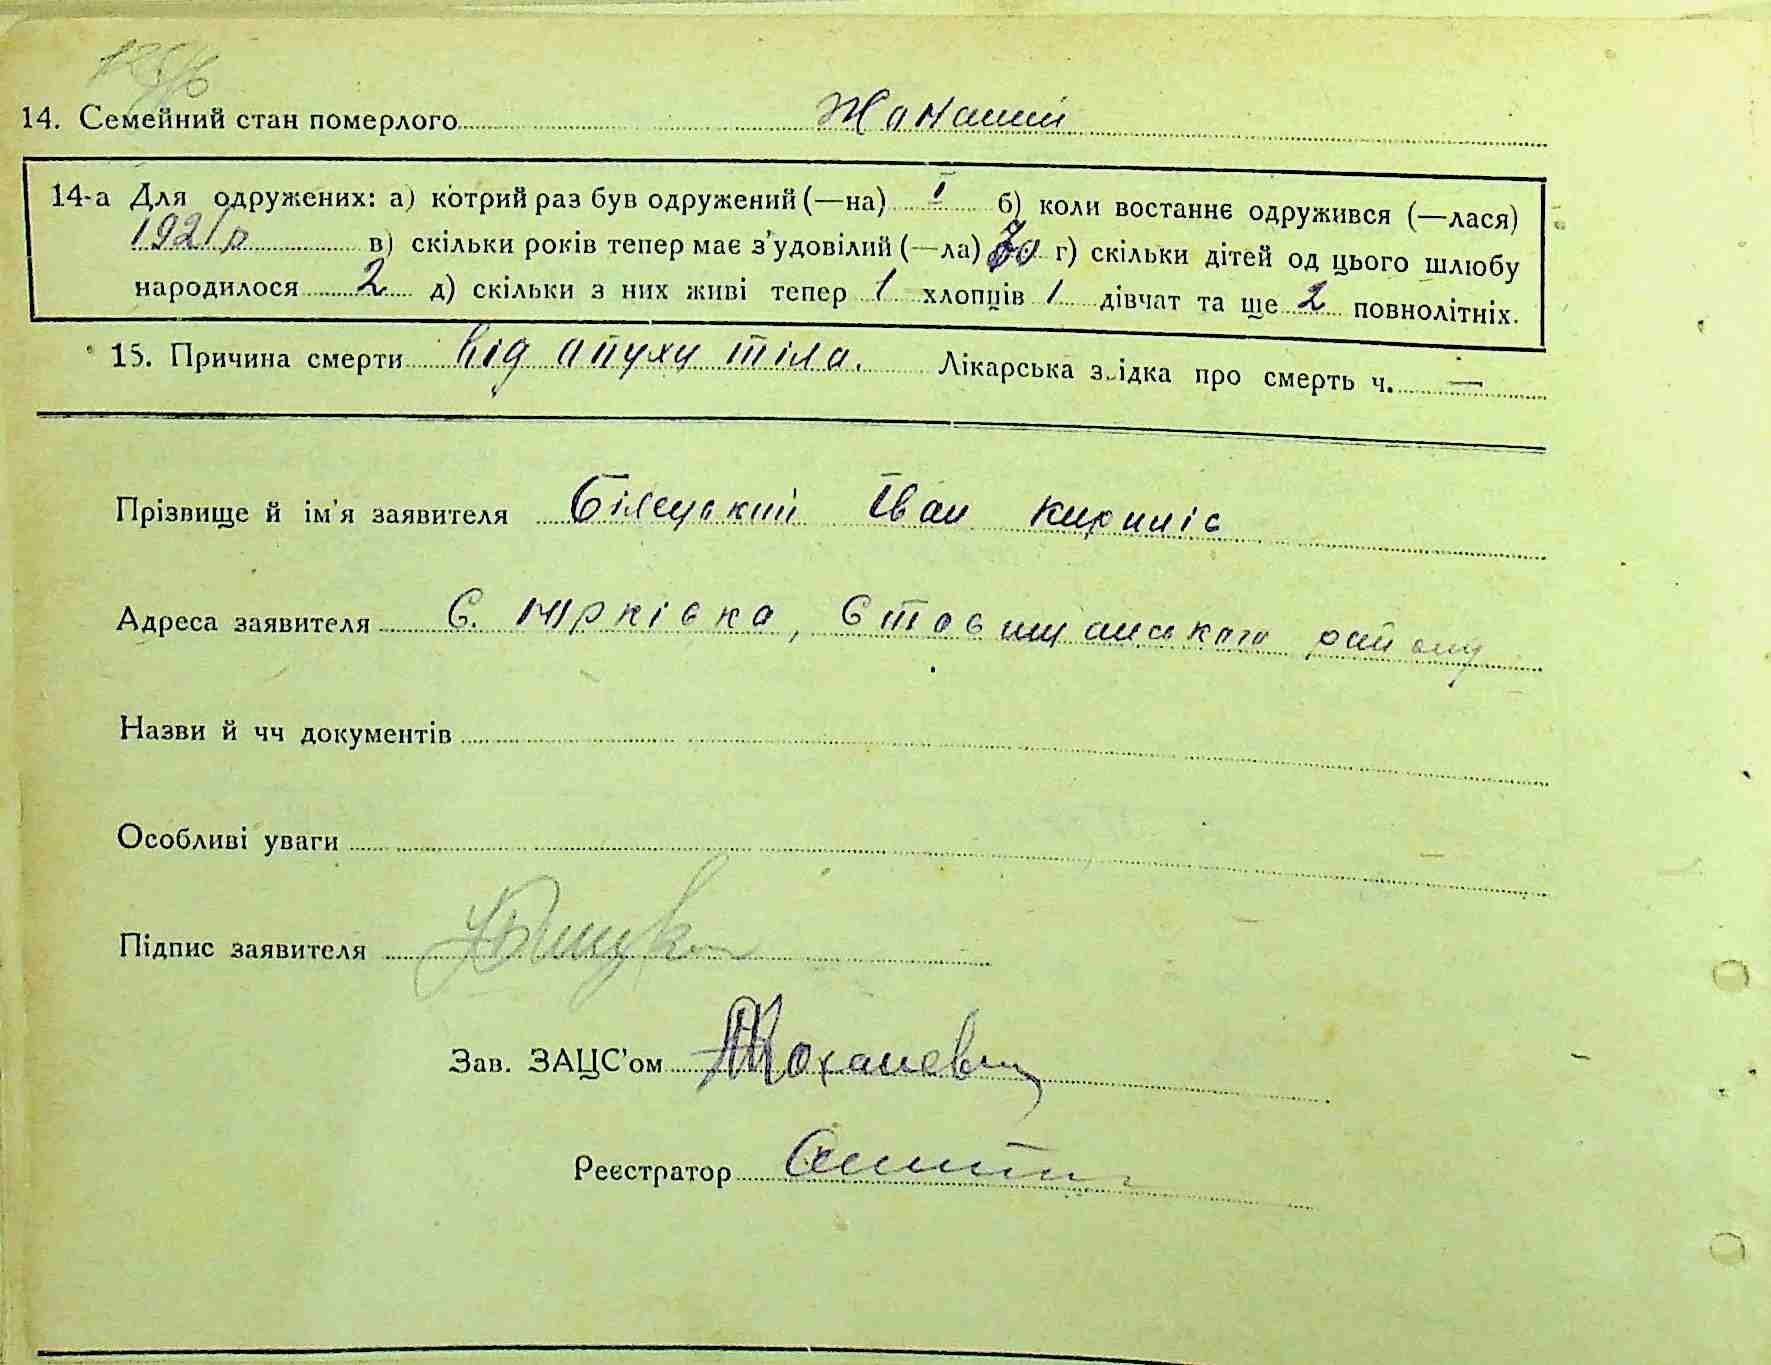 14. Семейний стан померлого Жонатий
14-а Для одружених: а) котрий раз був одружений (—на) I б) коли востаннє одружився (—лася)
1921 р в) скільки років тепер має з'удовілий (—ла) г) скільки дітей од цього шлюбу
народилося 2 д) скільки з них живі тепер 1 хлопців 1 дівчат та ще 2 повнолітніх.
15. Причина смерти від опуху тіла. Лікарська з.ідка про смерть ч. —
Прізвище й ім'я заявителя Білецький Іван
Адреса заявителя с. Юрківка, Ставищанського району
Назви й чч документів
Особливі уваги
Підпис заявителя
Зав. ЗАЦС'ом
Реєстратор